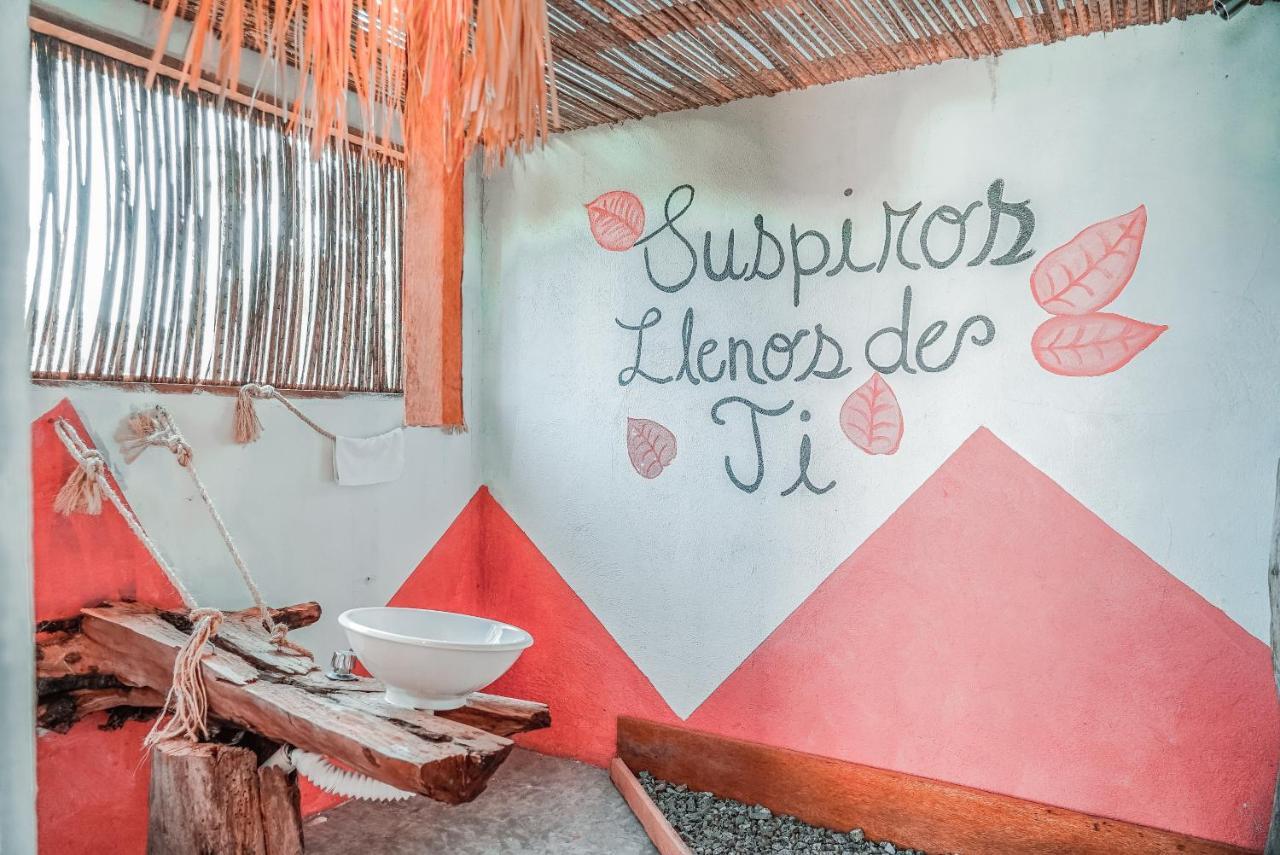 Suspiros
Llenos de
Ti